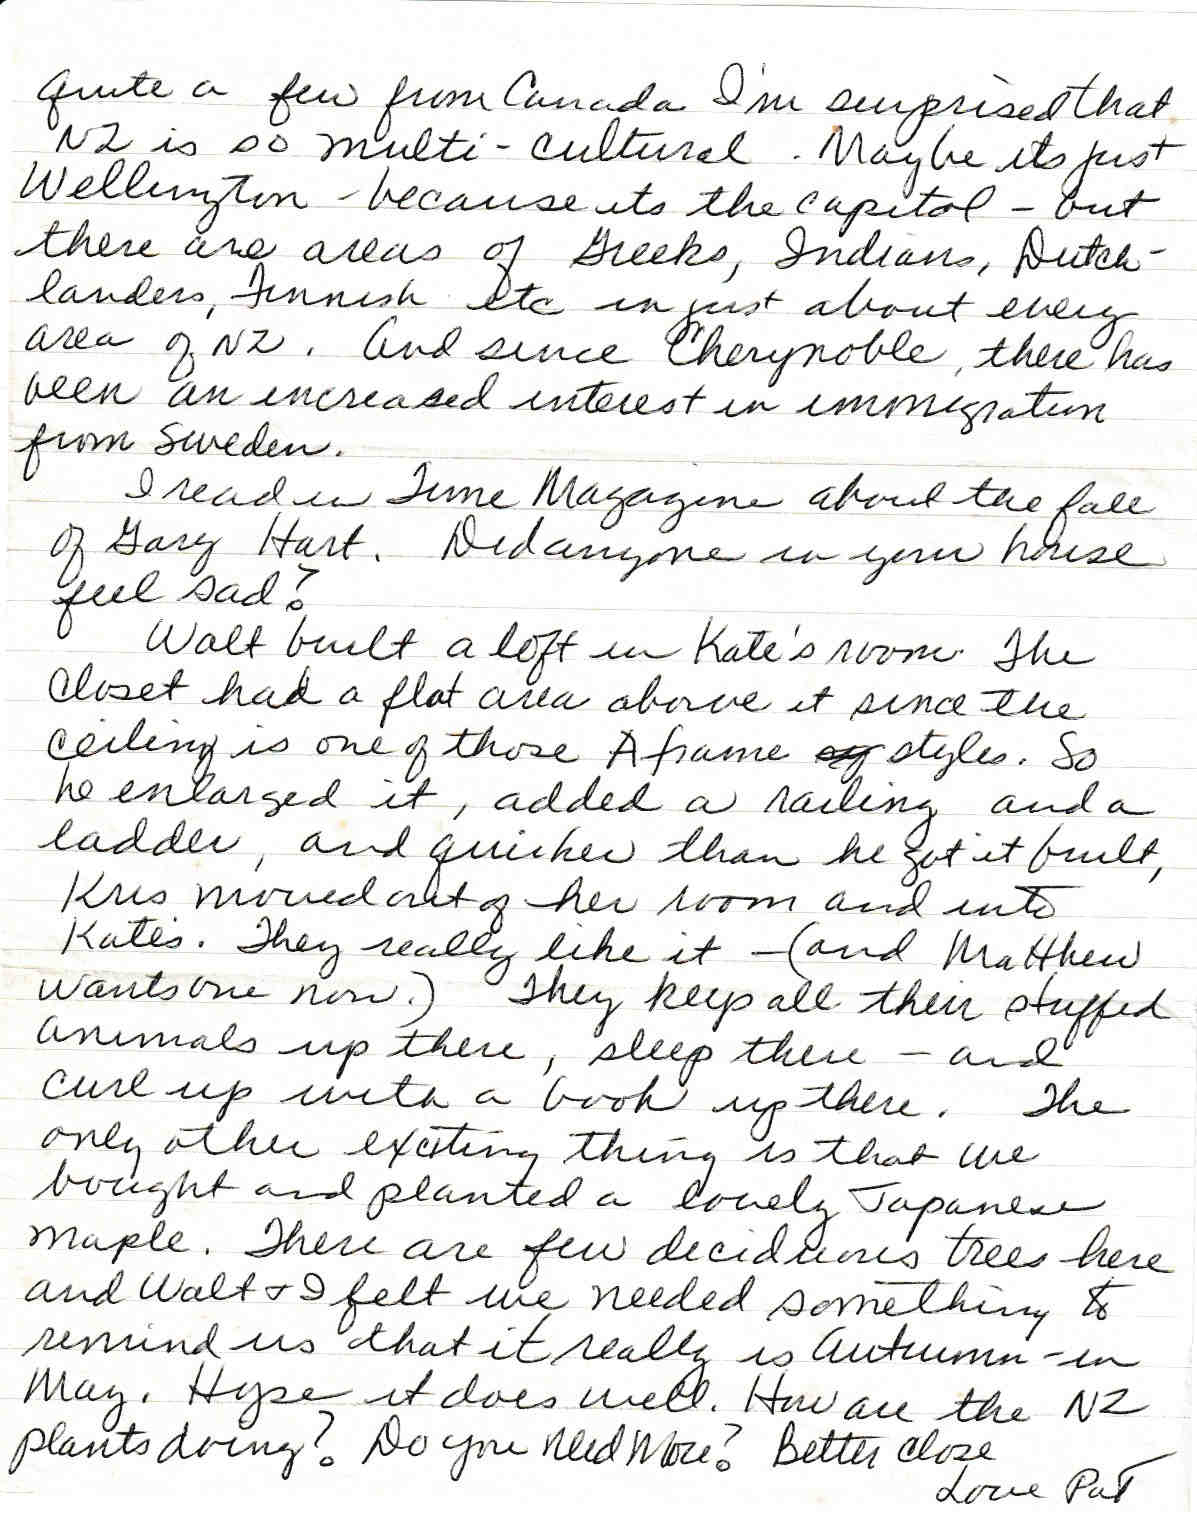 quite a few from Canada I'm surprised that
NZ is so multi-cultural. Maybe its just
Wellington - because its the capitol - but
there are areas of Greeks, Indians, Dutch-
landers, Finnish etc in just about every
area of NZ. And since Cherynoble, there has
been an increased interest in immigration
from Sweden.
I read in Time Magazine about the fall
of Gary Hart. Did anyone in your house
feel sad?
Walt built a loft in Kate's room. The
closet had a flat area above it since the
ceiling is one of those A frame styles. So
he enlarged it, added a railing and a
ladder, and quicker than he got it built,
Kris moved out of her room and into
Kate's. They really like it - (and Matthew
wants one now.) They keep all their stuffed
animals up there, sleep there - and
curl up with a book up there. The
only other exciting thing is that we
bought and planted a lovely Japanese
maple. There are few deciduous trees here
and Walt & I felt we needed something to
remind us that it really is Autumn - in
May. Hope it does well. How are the NZ
plants doing? Do you need more? Better close
Love Pat